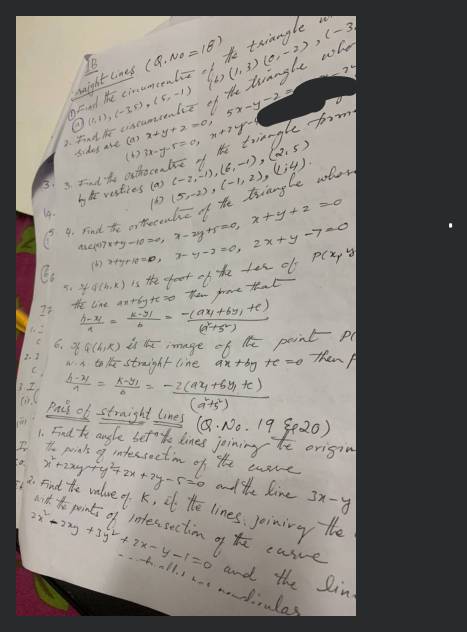 1B
Straight Lines (Q.No = 18)
① Find the circumcentre of the triangle
(a) (1,1), (-3,5), (5,-1) (b) (1,3) (0,-2), (-3,
2. Find the circumcentre of the triangle who
sides are (a) x+y+2=0, 5x-y-2=
(b) 3x-y-5=0, x+2y-
3. 3. Find the orthocentre of the triangle form
by the vertices (a) (-2,-1), (6,-1), (2,5)
(b) (5,-2), (-1,2), (1,4).
4. Find the orthocentre of the triangle whose
are (a) 7x+y-10=0, x-2y+5=0, x+y+2=0
(b) x+y+10=0, x-y-2=0, 2x+y-7=0
5. If Q(h,k) is the foot of the ler of P(x₁,y
the line ax+by+c=0 then prove that
h-x₁/a = k-y₁/b = -(ax₁+by₁+c)/(a²+b²)
6. If Q(h,k) is the image of the point P(
w.r to the straight line ax+by+c=0 then p
h-x₁/a = k-y₁/b = -2(ax₁+by₁+c)/(a²+b²)
Pair of straight Lines (Q.No. 19 & 20)
1. Find the angle bet the lines joining the origin
the points of intersection of the curve
x²+2xy+y²+2x+2y-5=0 and the line 3x-y
2. Find the value of K, if the lines joining the
with the points of intersection of the curve
2x²-2xy+3y²+2x-y-1=0 and the lin